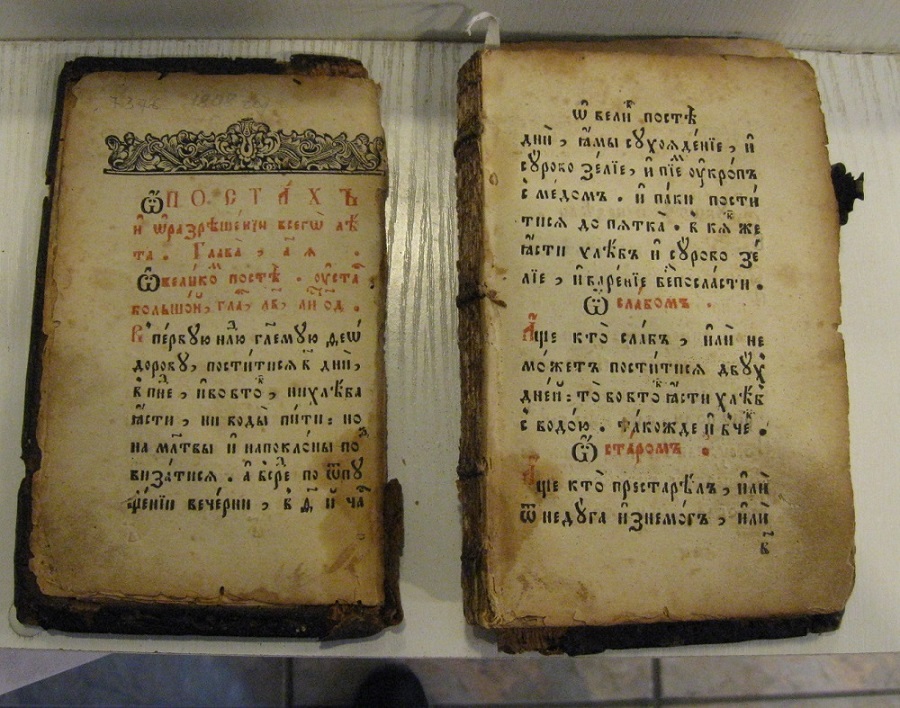 Ѿ П О С Т А́ Х Ъ
и҆ ѡ҆разрѣше́нїи всегѡ̀ лѣ
та . Глава̀ , а҃ ꙗ .
Ѡ҆вели́ко постѣ̀ . ᲂу҆ста
большо́й , гла , л҃в , ли о҃д .
Пе́рвую нлю гле́мую ѳеѡ
дорову , пости́тисѧ в҃ дни̑ ,
в пне , и҆во вто , ни хлѣ́ба
ꙗ҆́сти , ни воды̀ пи́ти : но
на мл҃твы и҆ напокло́ны по
виза́тисѧ . а҆ всре по ѿпу
ще́нїи вече́рни , в д҃ и҆ ча
ѡ҆ вели постѣ̀
дни̑ , ꙗ҆́мы сухоѧде́нїе , и҆
су́рово зе́лїе , и҆ пїе ᲂу҆кро́пъ
с ме́домъ . и҆ па́ки пости́
тисѧ до пѧтка̀ . в кѧ же
ꙗ҆́сти хлѣ́бъ и҆ су́рово зе́
лїе , и҆ варе́нїе бепосла́сти .
Ѡ҆ сла́бомъ .
А҆́ще кто̀ сла́бъ , и҆лѝ не
мо́жетъ пости́тисѧ дву́хъ
дне́й : то̀ во вто ꙗ҆́сти хлѣ́бъ
с водо́ю . та́кожде и҆ в че .
Ѡ҆ ста́ромъ .
А҆́ще кто̀ престарѣ́лъ , и҆лѝ
ѿ неду́га и҆знемо́гъ , и҆лѝ
в҃